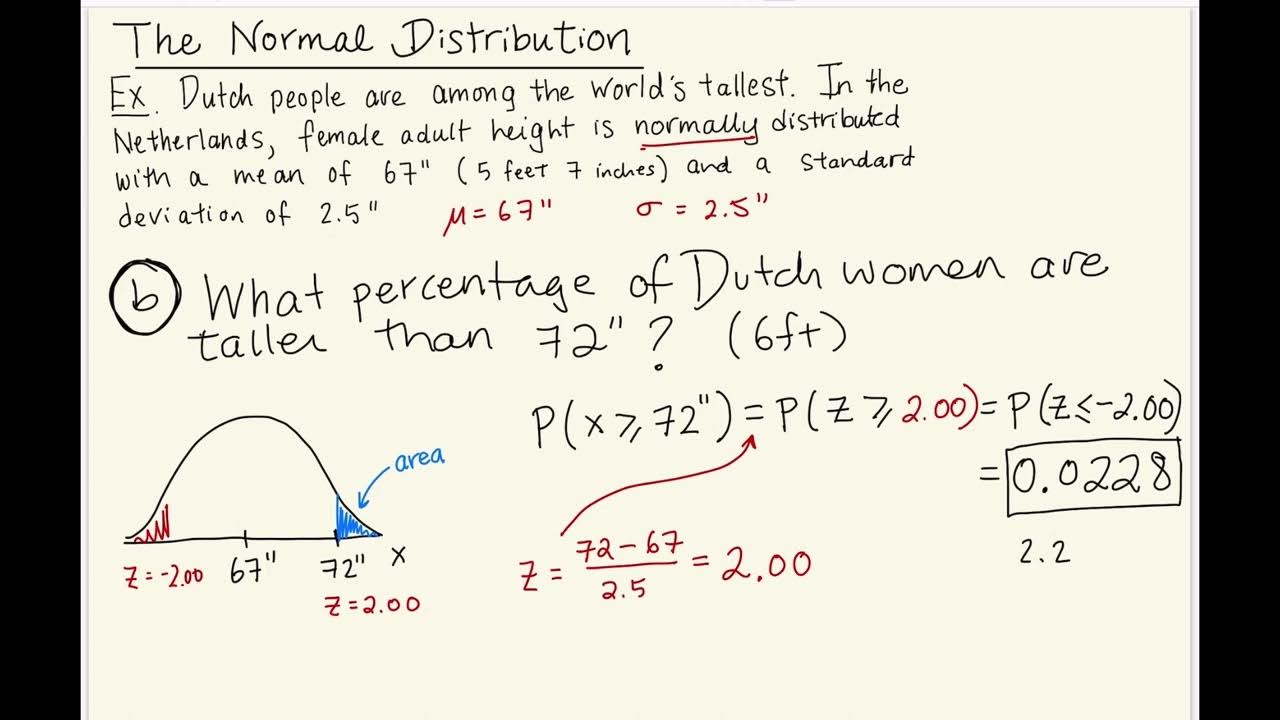 The Normal Distribution
Ex. Dutch people are among the world's tallest. In the
Netherlands, female adult height is normally distributed
with a mean of 67" (5 feet 7 inches) and a standard
deviation of 2.5" μ = 67" σ = 2.5"
b What percentage of Dutch women are
taller than 72"? (6ft)
P(x ⩾ 72") = P(Z ⩾ 2.00) = P(Z ≤ -2.00)
= 0.0228
area
Z = (72 - 67)/2.5 = 2.00
2.2
Z = -2.00 67" 72" x
Z = 2.00